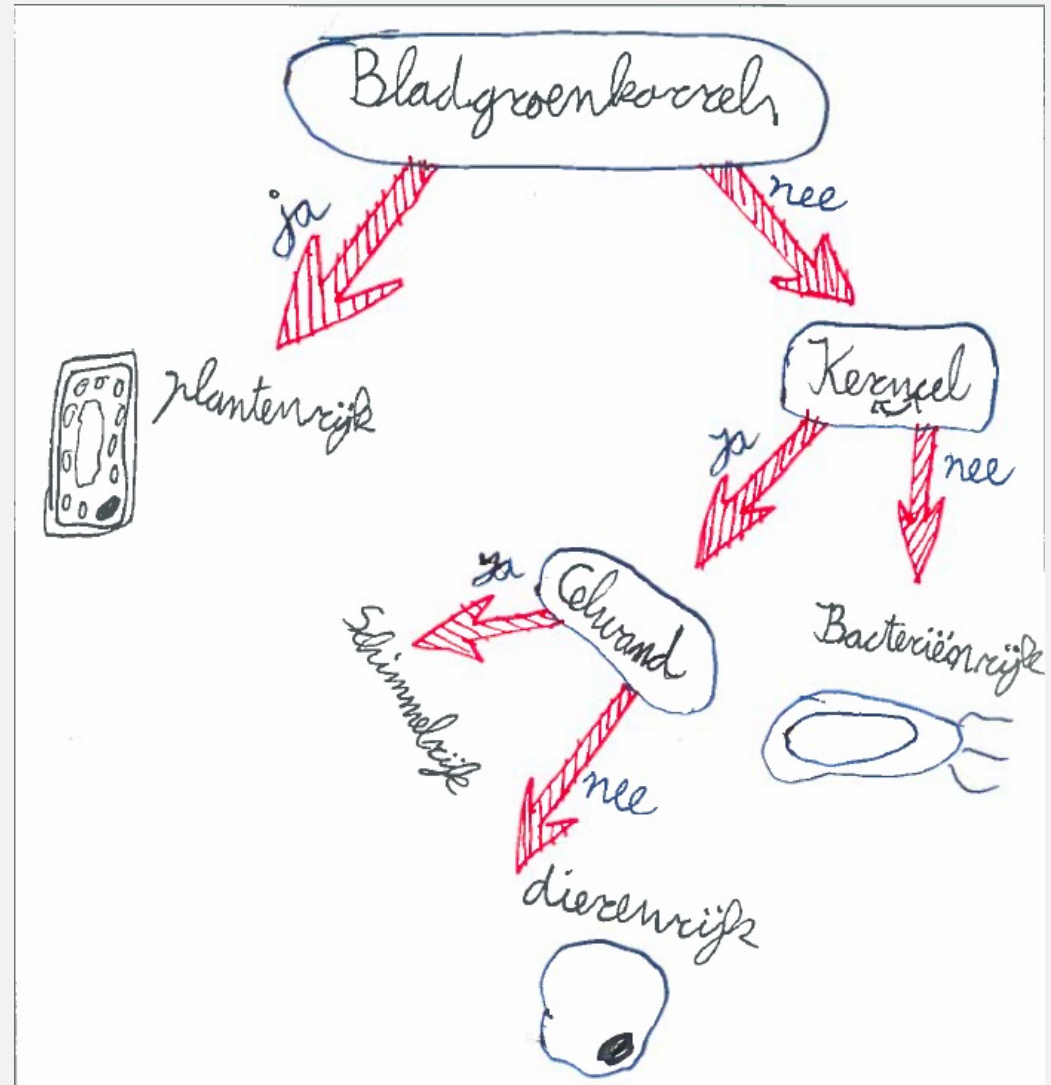 Bladgroenkorrels
ja
nee
plantenrijk
ja
nee
ja
Celwand
Schimmelrijk
Bacteriënrijk
nee
dierenrijk